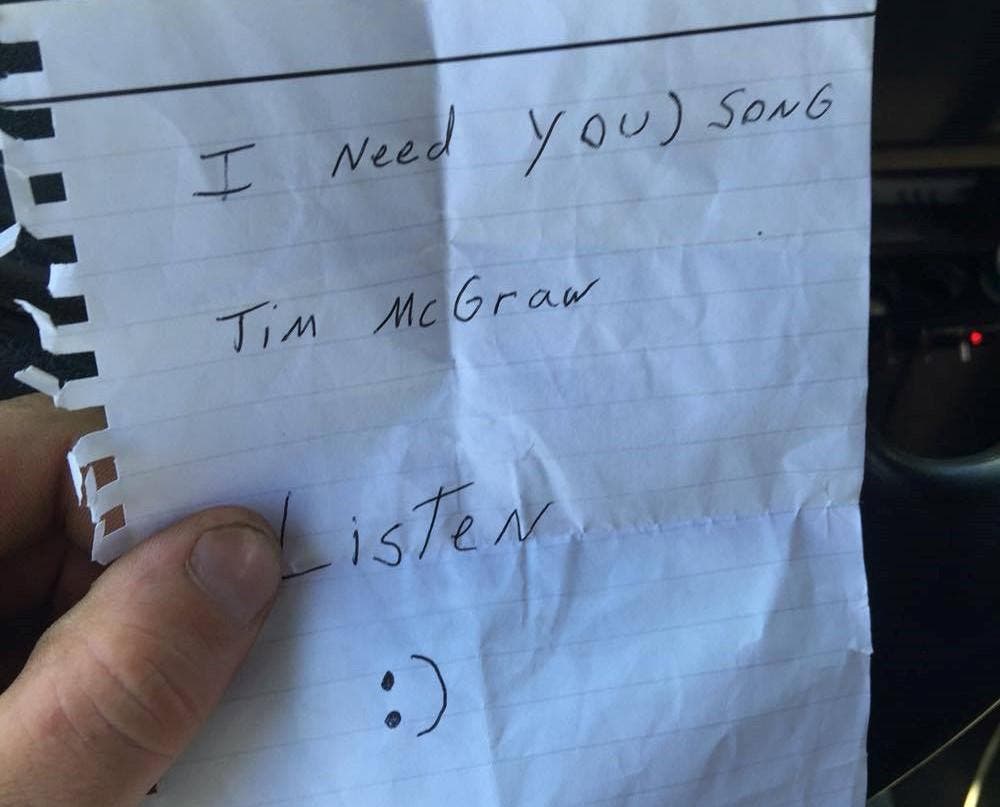 I Need YOU) SONG
Tim McGraw
Listen
:)